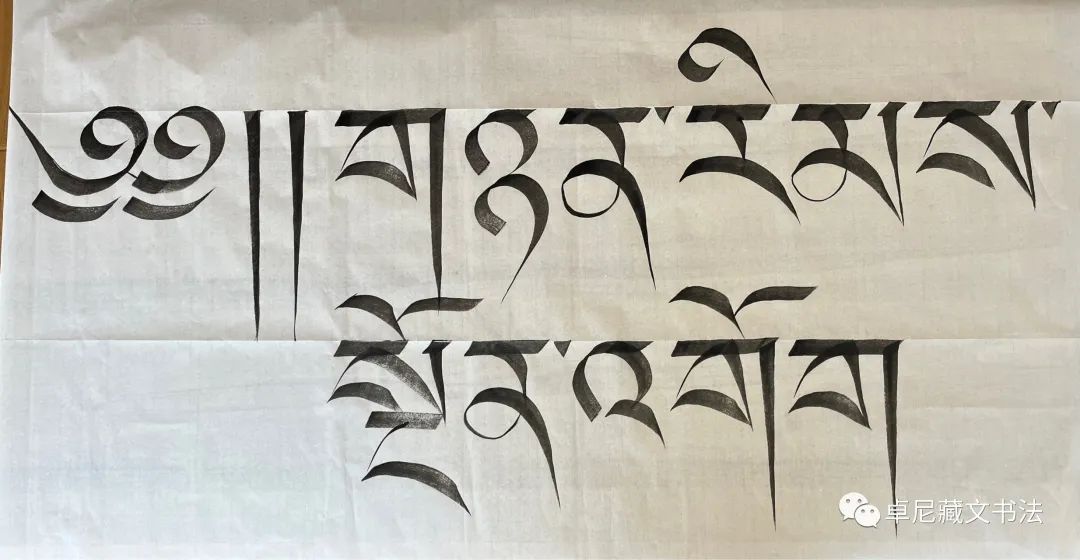 ༄༅།།གཉན་རིམས་
སྔོན་འགོག
卓尼藏文书法